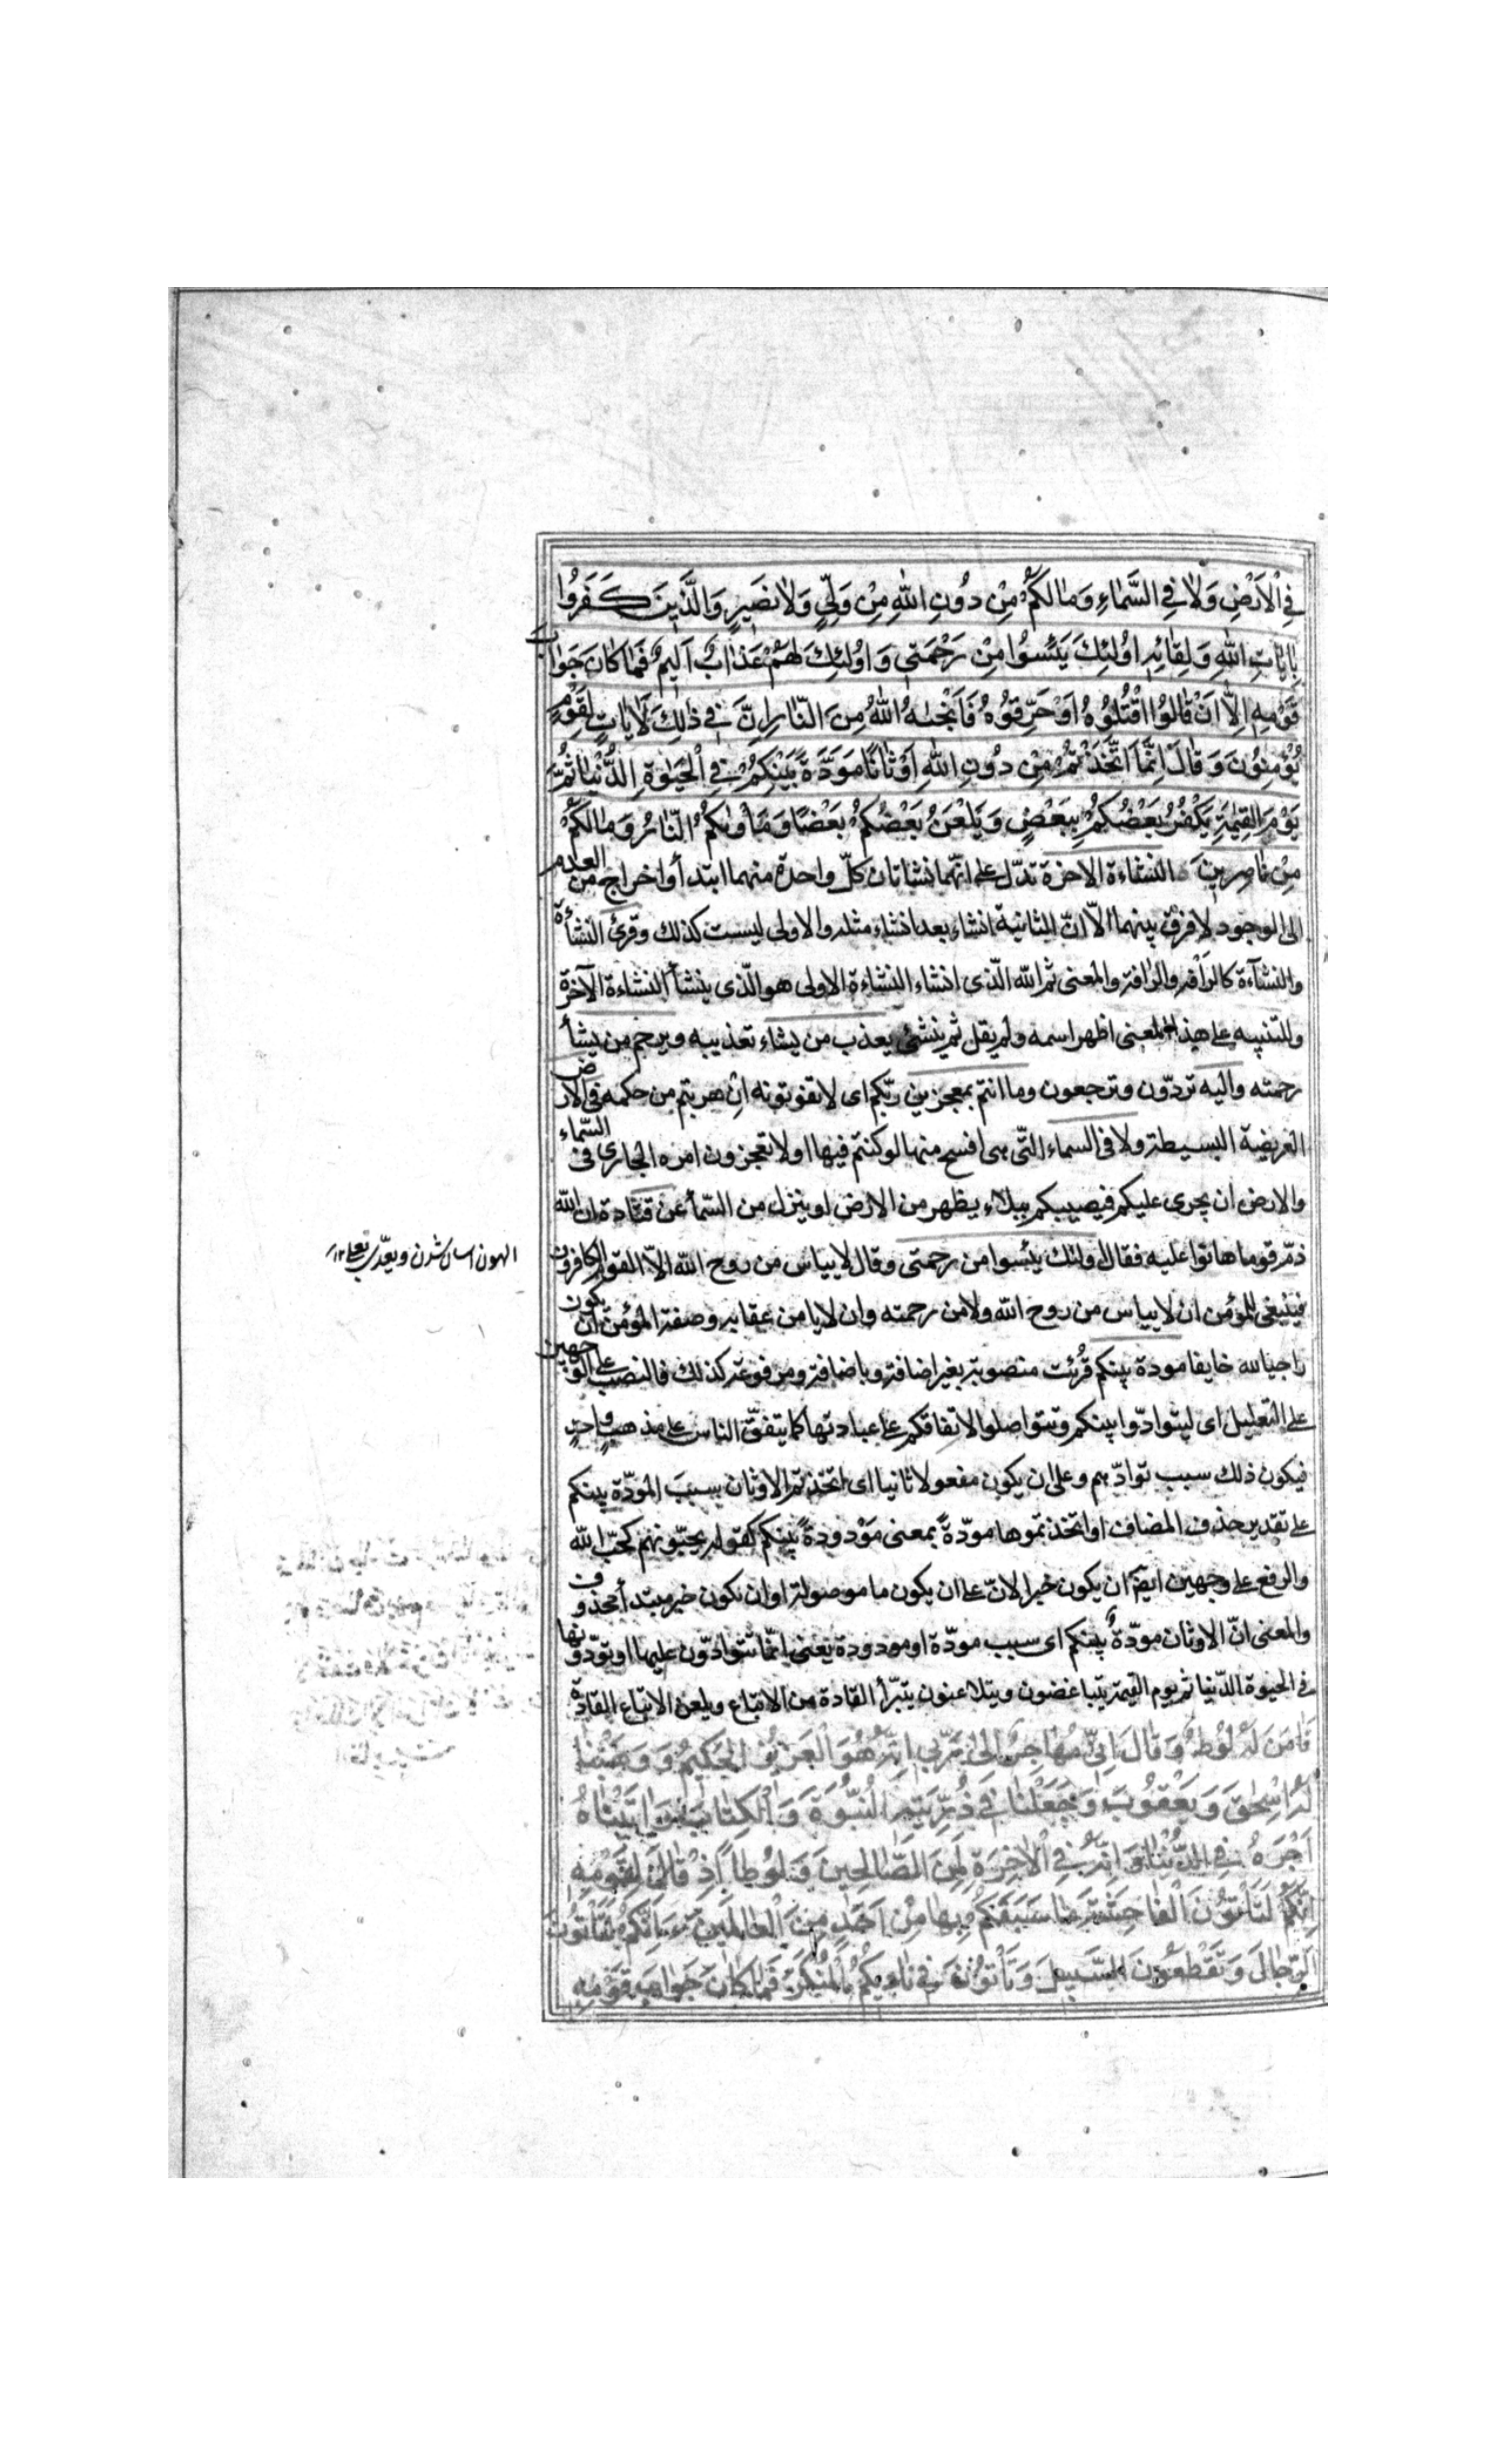 فِي الْاَرْضِ وَلَا فِي السَّمَاءِ وَمَا لَكُمْ مِنْ دُونِ اللهِ مِنْ وَلِيٍّ وَلَا نَصِيرٍ وَالَّذِينَ كَفَرُوا
بِاٰيَاتِ اللهِ وَلِقَائِهِ اُولٰئِكَ يَئِسُوا مِنْ رَحْمَتِي وَاُولٰئِكَ لَهُمْ عَذَابٌ اَلِيمٌ فَمَا كَانَ جَوَابَ
قَوْمِهِ اِلَّا اَنْ قَالُوا اقْتُلُوهُ اَوْ حَرِّقُوهُ فَاَنْجٰىهُ اللهُ مِنَ النَّارِ اِنَّ فِي ذٰلِكَ لَاٰيَاتٍ لِقَوْمٍ
يُؤْمِنُونَ وَقَالَ اِنَّمَا اتَّخَذْتُمْ مِنْ دُونِ اللهِ اَوْثَانًا مَوَدَّةً بَيْنَكُمْ فِي الْحَيٰوةِ الدُّنْيَا ثُمَّ
يَوْمَ الْقِيٰمَةِ يَكْفُرُ بَعْضُكُمْ بِبَعْضٍ وَيَلْعَنُ بَعْضُكُمْ بَعْضًا وَمَأْوٰىكُمُ النَّارُ وَمَا لَكُمْ
مِنْ نَاصِرِينَ النشاءة الاخرة تدلّ على انّهما نشاتان كلّ واحدة منهما ابتدأ واخراج من العدم
الى الوجود لا فرق بينهما الاّ انّ الثانية انشاء بعد انشاء مثله والاولى ليست كذلك وقرئ النشأة
والنشآءة كالرأفة والرآفة والمعنى ثم الله الّذى انشاء النشاءة الاولى هو الّذى ينشأ النشاءة الآخرة
وللتنبيه على هذا المعنى اظهر اسمه ولم يقل ثم ينشئ يعذب من يشاء تعذيبه ويرحم من يشأ
رحمته واليه تردّون وترجعون وما انتم بمعجزين ربّكم اى لا تفوتونه ان هربتم من حكمه فى الارض
العريضة البسيطة ولا فى السماء التّى هى افسح منها لو كنتم فيها او لا تعجزون امره الجارى فى السّماء
والارض ان يجرى عليكم فيصيبكم ببلاء يظهر من الارض او ينزل من السّمأ عن قتادة ان الله
ذمّ قوما هانوا عليه فقال اولئك يئسوا من رحمتى وقال لا يياس من روح الله الاّ القوم الكافرون
فينبغى للمؤمن ان لا يياس من روح الله ولا من رحمته وان لا يامن عقابه وصفة المؤمن ان يكون
راجيا لله خايفا مودة بينكم قُرئت منصوبة بغير اضافة وباضافة ومرفوعة كذلك فالنصب على الوجهين
على التعليل اى ليتوادّوا بينكم وتتواصلوا لاتفاقكم على عبادتها كما يتفق الناس على مذهب واحد
فيكون ذلك سبب توادّهم وعلى ان يكون مفعولا ثانيا اى اتخذتم الاوثان بسبب المودّة بينكم
على تقدير حذف المضاف او اتخذتموها مودّةً بمعنى مَوْدودة بينكم كقوله يحبّونهم كحبّ الله
والرفع على وجهين ايضا ان يكون خبرا لانّ على ان يكون ما موصولة او ان يكون خبر مبتدأ محذوف
والمعنى انّ الاوثان مودّةٌ بينكم اى سبب مودّة او مودودة يعنى انّما تتوادّون عليها او تودّونها
فى الحيوة الدّنيا ثم يوم القيمة يتباغضون ويتلاعنون يتبرّأ القادة من الاتباع ويلعن الاتباع القادة
فَاٰمَنَ لَهُ لُوطٌ وَقَالَ اِنِّي مُهَاجِرٌ اِلٰى رَبِّي اِنَّهُ هُوَ الْعَزِيزُ الْحَكِيمُ وَوَهَبْنَا
لَهُ اِسْحٰقَ وَيَعْقُوبَ وَجَعَلْنَا فِي ذُرِّيَّتِهِ النُّبُوَّةَ وَالْكِتَابَ وَاٰتَيْنَاهُ
اَجْرَهُ فِي الدُّنْيَا وَاِنَّهُ فِي الْاٰخِرَةِ لَمِنَ الصَّالِحِينَ وَلُوطًا اِذْ قَالَ لِقَوْمِهِ
اِنَّكُمْ لَتَأْتُونَ الْفَاحِشَةَ مَا سَبَقَكُمْ بِهَا مِنْ اَحَدٍ مِنَ الْعَالَمِينَ ءَاِنَّكُمْ لَتَأْتُونَ
الرِّجَالَ وَتَقْطَعُونَ السَّبِيلَ وَتَأْتُونَ فِي نَادِيكُمُ الْمُنْكَرَ فَمَا كَانَ جَوَابَ قَوْمِهِ
الهون اسان شدن ويعدّى بعلى ١٢